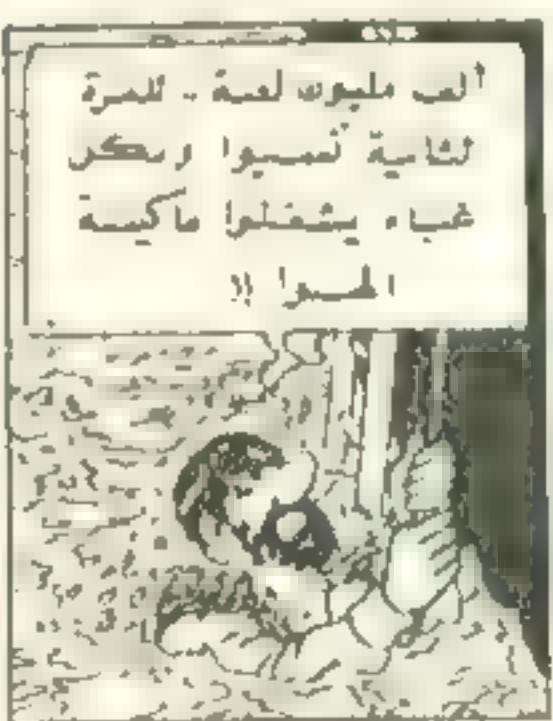 ألف مليون لعنة .. للمرة
لثانية نسيوا وبكل
غباء يشغلوا ماكينة
الهوا !!